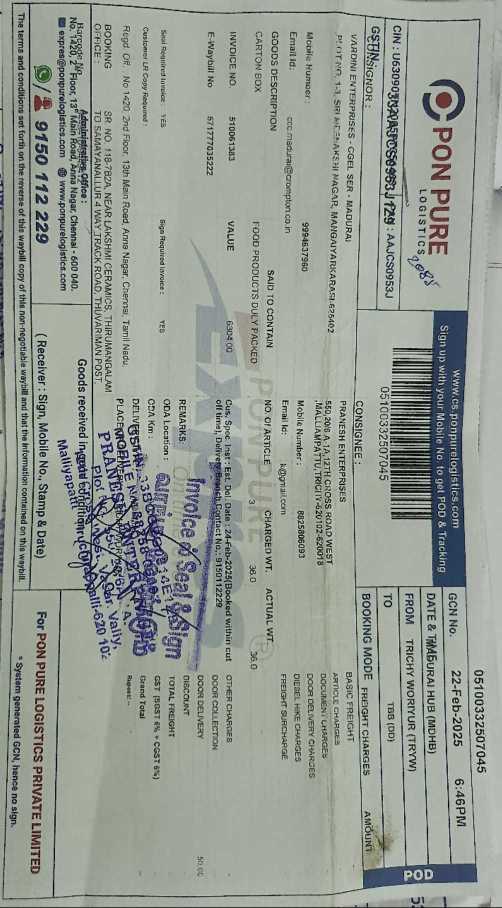 PON PURE
LOGISTICS
2085
www.cs.ponpurelogistics.com
Sign up with your Mobile No. to get POD & Tracking
05100332507045
POD
GCN No.
22-Feb-2025 6:46PM
DATE & TIME
MADURAI HUB (MDHB)
FROM TRICHY WORIYUR (TRYW)
TO TBB (DD)
BOOKING MODE FREIGHT CHARGES AMOUNT
05100332507045
AAJCS0953J
GSTIN
CONSIGNOR :
VARDINI ENTERPRISES - CGEL SER - MADURAI
MANGAIYARKARASI-625402
Mobile Number : 9994637960
Email Id: ccc.madurai@crompton.co.in
CONSIGNEE :
PRANESH ENTERPRISES
550,20/6 A,1A,12TH CROSS ROAD WEST
,MALLIAMPATTU,TRICHY-620102-620018
Mobile Number : 8825806093
Email Id: k@gmail.com
GOODS DESCRIPTION SAID TO CONTAIN NO. Of ARTICLE CHARGED WT. ACTUAL WT.
CARTON BOX FOOD PRODUCTS DULY PACKED 3 36.0 36.0
INVOICE NO. 510061383 VALUE 6304.00
E-Waybill No 571777035222
Cus. Spoc. Inst : Est. Del. Date : 24-Feb-2025(Booked within cut
off time), Delivery Branch Contact No. : 9150112229
REMARKS:
ODA Location :
ODA Km :
Seal Required Invoice : YES Sign Required Invoice : YES
Customer LR Copy Required :
BASIC FREIGHT
ARTICLE CHARGES
DOCUMENT CHARGES
DOOR DELIVERY CHARGES
DIESEL HIKE CHARGES
FREIGHT SURCHARGE
OTHER CHARGES
DOOR COLLECTION
DOOR DELIVERY 50.00
DISCOUNT
TOTAL FREIGHT
GST (SGST 6% + CGST 6%)
Grand Total
Rupees: -
Invoice & Seal & Sign
Regd. Off : No 1420, 2nd Floor, 13th Main Road, Anna Nagar, Chennai, Tamil Nadu,
BOOKING OFFICE :
SR. NO. 118-7B2A, NEAR LAKSHMI CERAMICS, THIRUMANGALAM
TO SAMAYANALLUR 4 WAY TRACK ROAD, THUVARIMAN POST,
Administrative Office :
No. 1420, 2nd Floor, 13th Main Road, Anna Nagar, Chennai - 600 040.
expres@ponpurelogistics.com www.ponpurelogistics.com
9150 112 229
( Receiver : Sign, Mobile No., Stamp & Date)
For PON PURE LOGISTICS PRIVATE LIMITED
* System generated GCN, hence no sign.
The terms and conditions set forth on the reverse of this waybill copy of this non-negotiable waybill and that the information contained on this waybill.